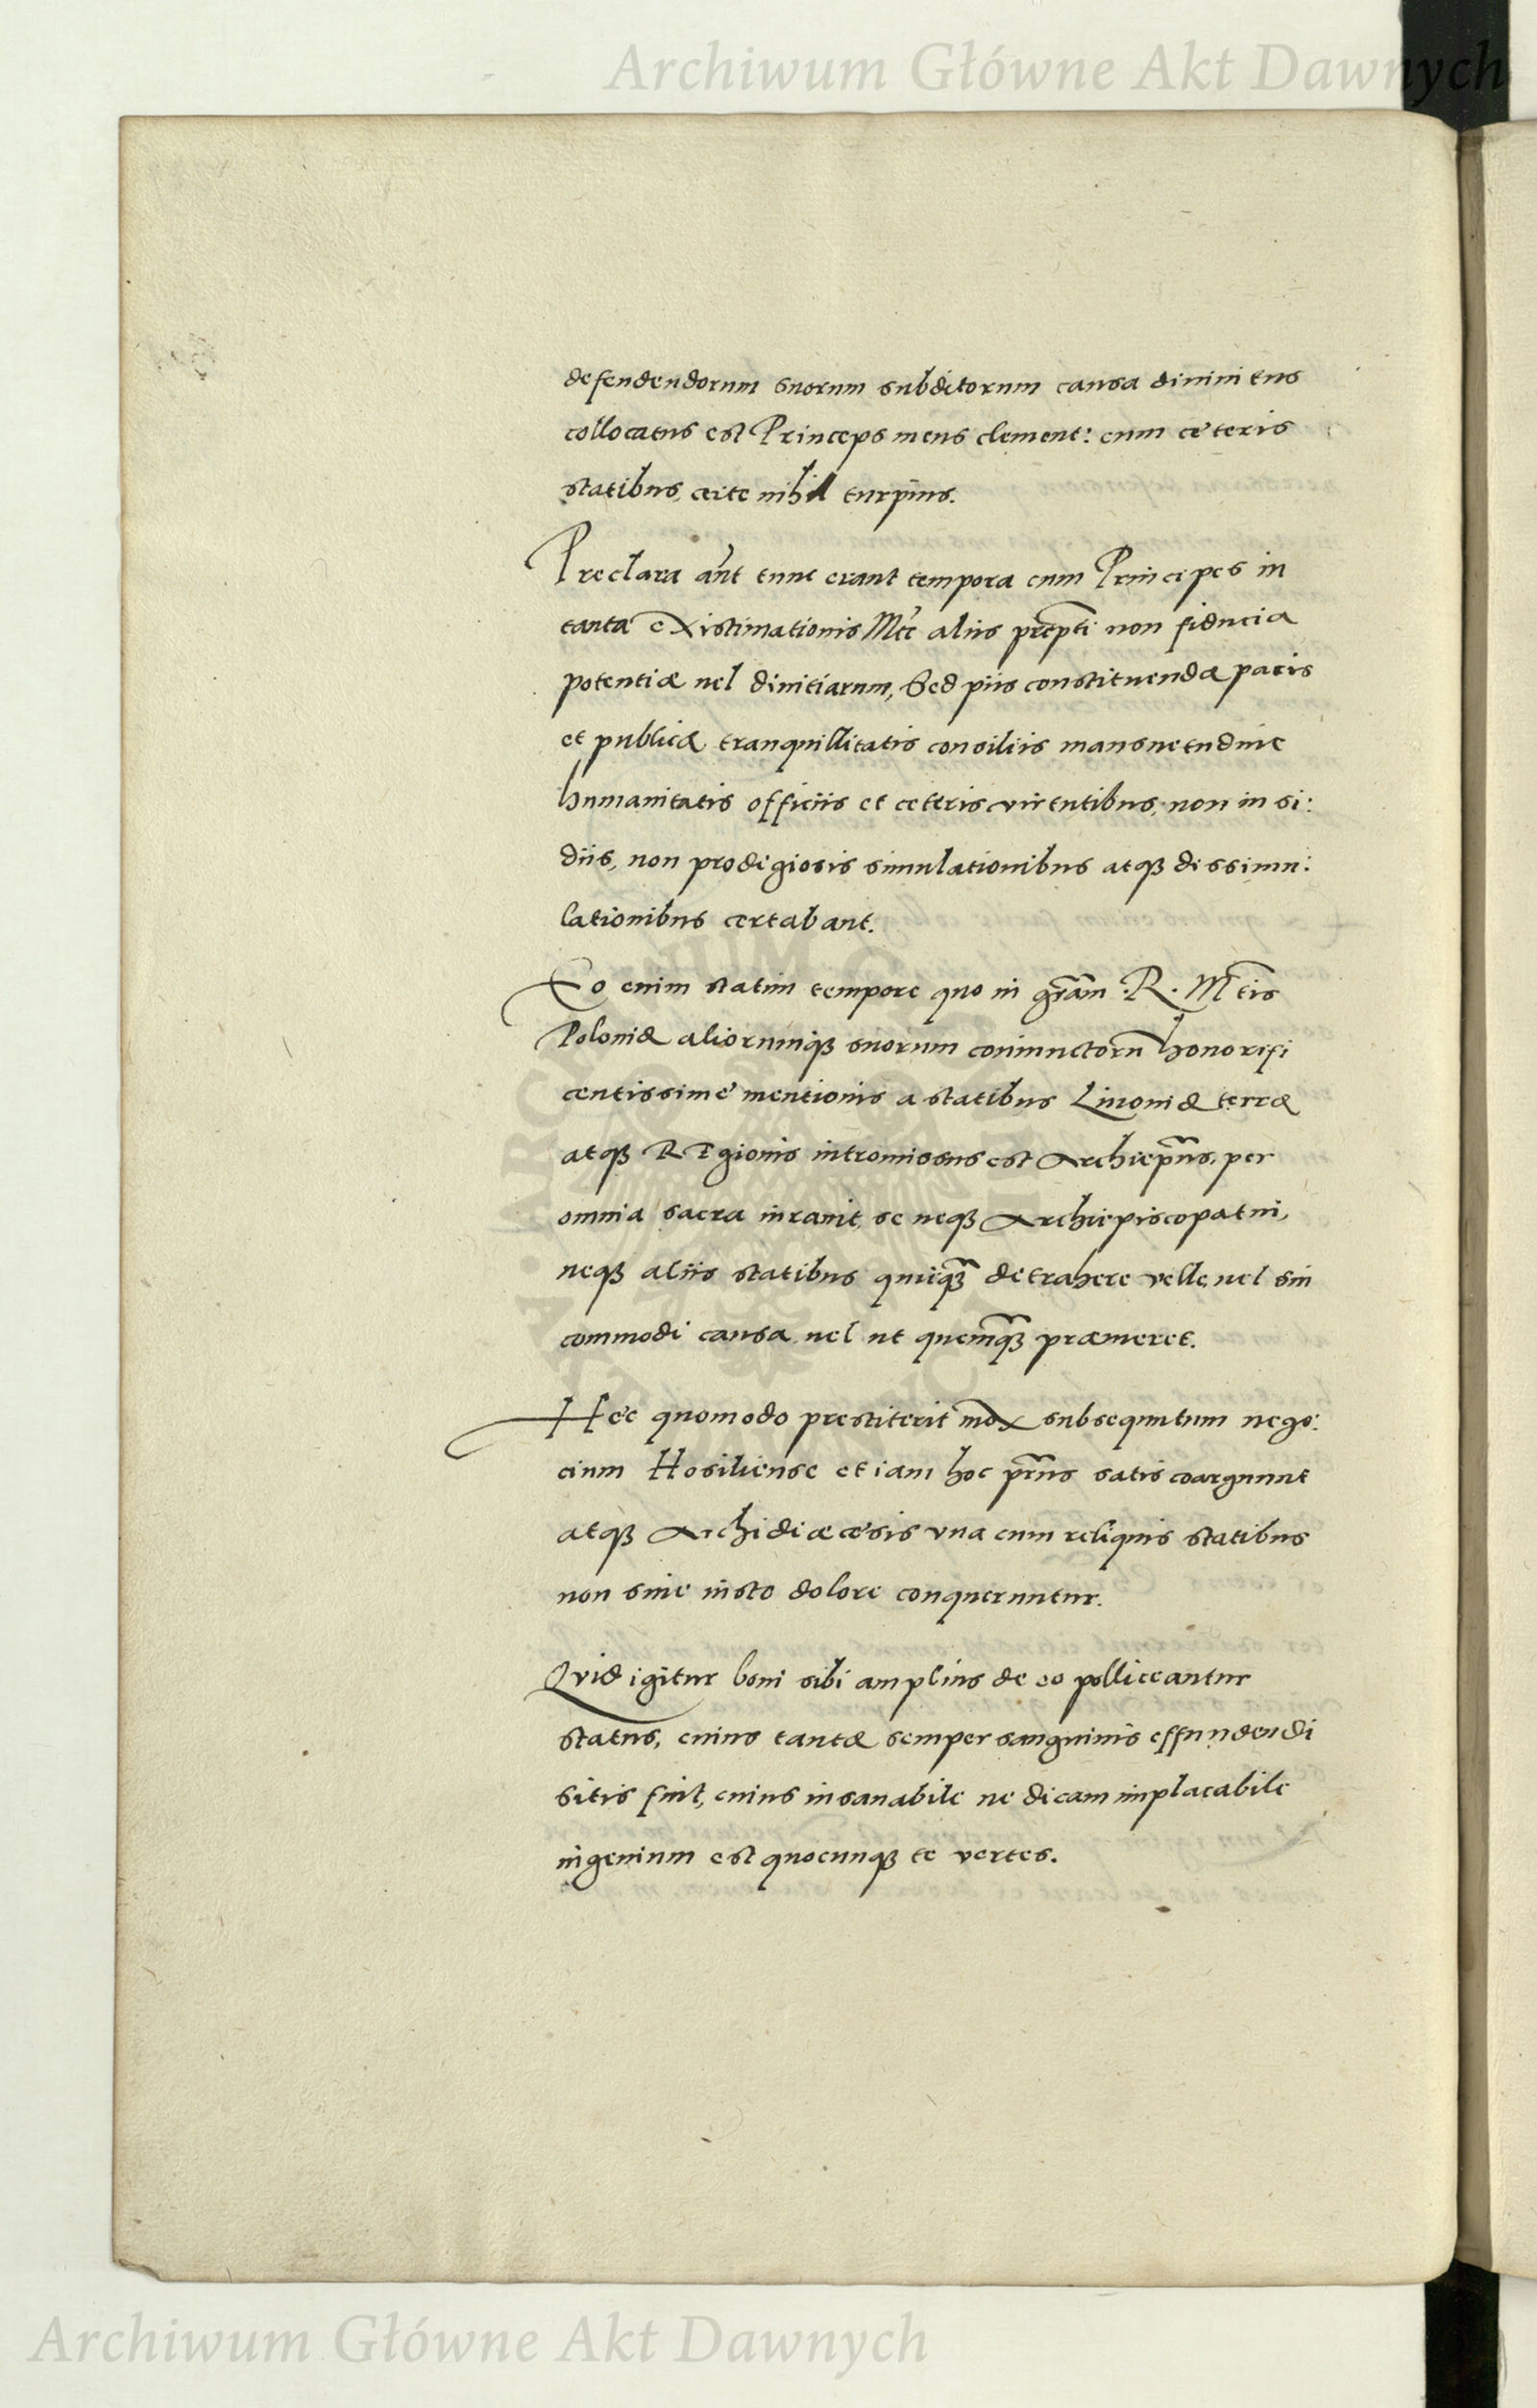 Archiwum Główne Akt Dawnych
defendendorum suorum subditorum causa diuinitus
collocatus est Princeps meus clement: cum cęteris
statibus, certe nihil turpius.
Preclara aut tunc erant tempora cum Principes in
tanta existimationis Mte aliis prępti non fiducia
potentiæ uel diuitiarum, Sed piis constituendæ pacis
et publicæ tranquillitatis consiliis mansuetudine
humanitatis officiis et ceteris virtutibus, non insi:
diis, non prodigiosis simulationibus atqꝫ dissimu:
lationibus certabant.
Eo enim statim tempore quo in gr̃am .R. Mtis
Poloniæ aliorumqꝫ suorum coniunctorũ honorifi
centissime mentionis a statibus Liuoniæ terræ
atqꝫ Regionis intromissus est Archiep̃us, per
omnia sacra iurauit, se neqꝫ Archiepiscopatui,
neqꝫ aliis statibus quicqꝫ̃ detrahere velle, uel sui
commodi causa, uel ut quemqꝫ̃ præmeret.
Hęc quomodo prestiterit mox subsequutum nego:
cium Hosiliense et iam hoc pr̃ns satis coarguunt
atqꝫ Archidiæcesis vna cum reliquis statibus
non sine iusto dolore conqueruntur.
Qvid igitur boni sibi amplius de eo polliceantur
status, cuius tantæ semper sanguinis effundendi
sitis fuit, cuius insanabile ne dicam implacabile
ingenium est quocunqꝫ te vertes.
Archiwum Główne Akt Dawnych